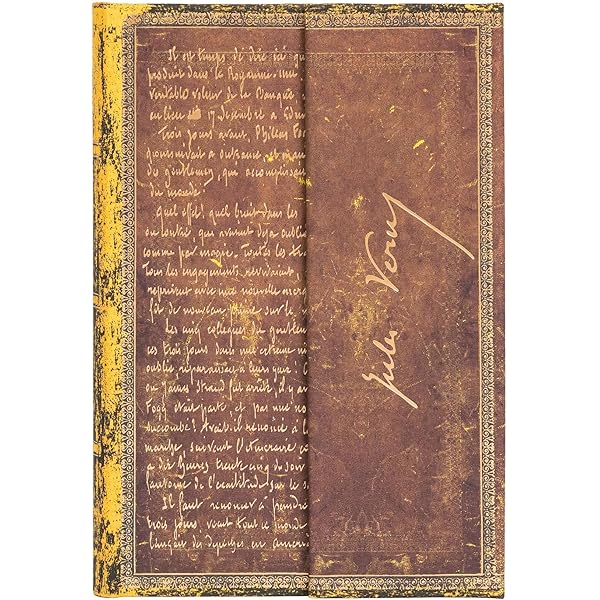 Il est temps de dire ici qu
produit dans le Royaume-Uni
véritable voleur de la Banque
eu lieu 17 Décembre à Edim
Trois jours avant, Phileas Fo
poursuivait à outrance, et main
des gentlemen, qui accomplissai
du monde.
Quel effet! quel bruit dans les
ou contre, qui avaient déjà oublié
comme par magie. Toutes les tra
Tous les engagements revivaient,
reprirent avec une nouvelle énerg
fit de nouveau prime sur le m
Les cinq collègues du gentlem
ces trois jours dans une certaine in
oublié, reparaissait à leurs yeux! O
où James Strand fut arrêté, il y av
Fogg était parti, et pas une no
succombé! Avait-il renoncé à l
marche, suivant l'itinéraire co
à dix heures trente cinq du soir
fantôme de l'exactitude sur le s
Il faut renoncer à peindre
trois jours, vécut tout ce monde
lançait des dépêches en Améri
Jules Verne